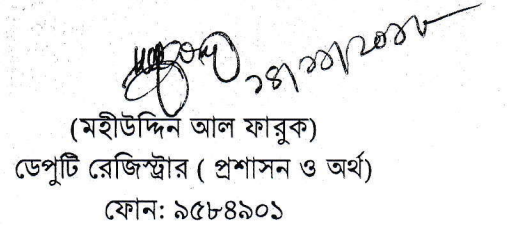 ১৪/১১/২০১৮
(মহীউদ্দিন আল ফারুক)
ডেপুটি রেজিস্ট্রার ( প্রশাসন ও অর্থ)
ফোন: ৯৫৮৪৯০১